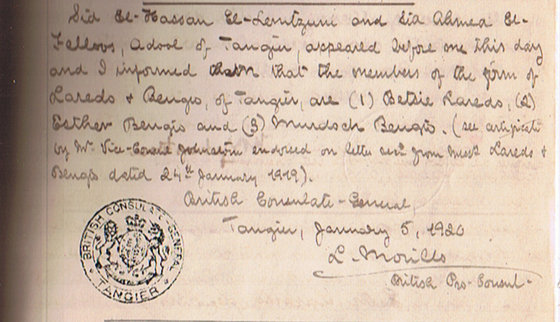 Sid El-Hassan El-Lemtzuni and Sid Ahmed El-
Felloos, adool of Tangier, appeared before me this day
and I informed them that the members of the firm of
Laredo & Bengio, of Tangier, are (1) Betsie Laredo, (2)
Esther Bengio and (3) Murdoch Bengio. (see certificate
by Mr Vice-Consul Johnston endorsed on letter from Laredo &
Bengio dated 24th January 1919).
British Consulate-General,
Tangier, January 5, 1920
L. Morillo
British Pro-Consul.
BRITISH CONSULATE GENERAL
TANGIER